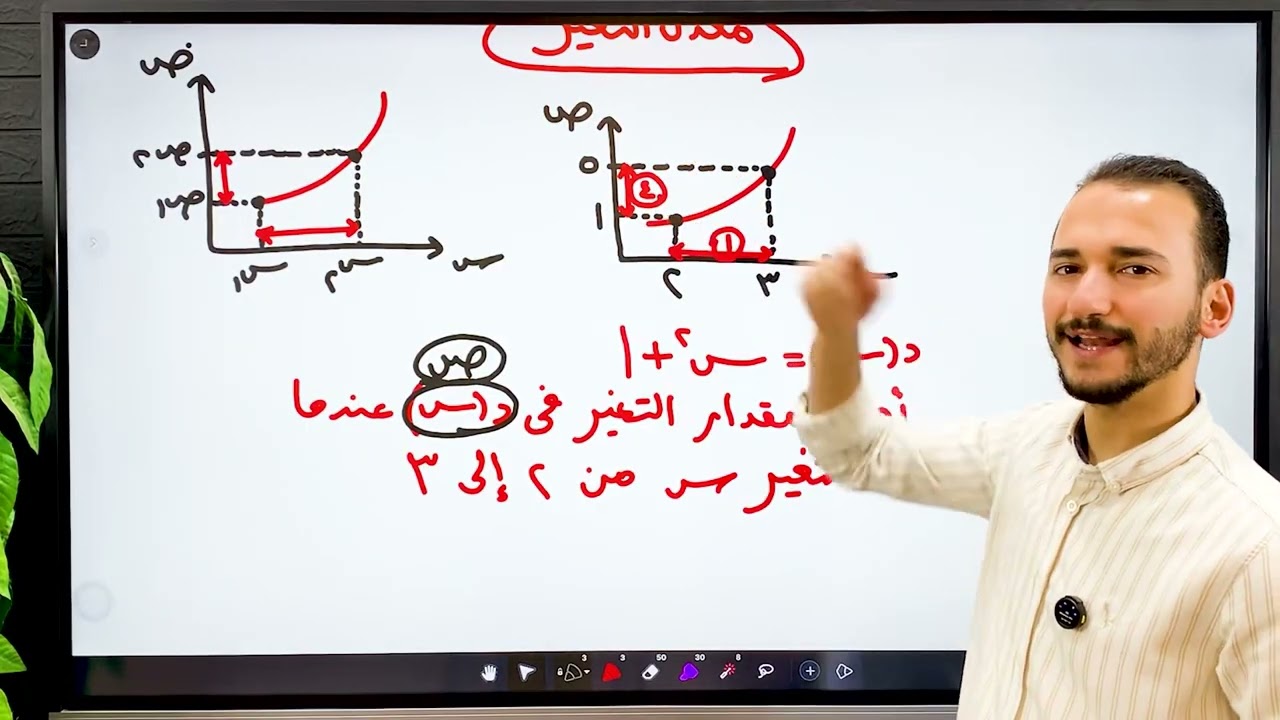 معدل التغير
ص
ص٢
ص١
س١
س٢
س
ص
٥
١
٤
١
٢
٣
د(س) = س٢ + ١
ص
مقدار التغير فى د(س) عندما
س من ٢ إلى ٣
3
50
30
8